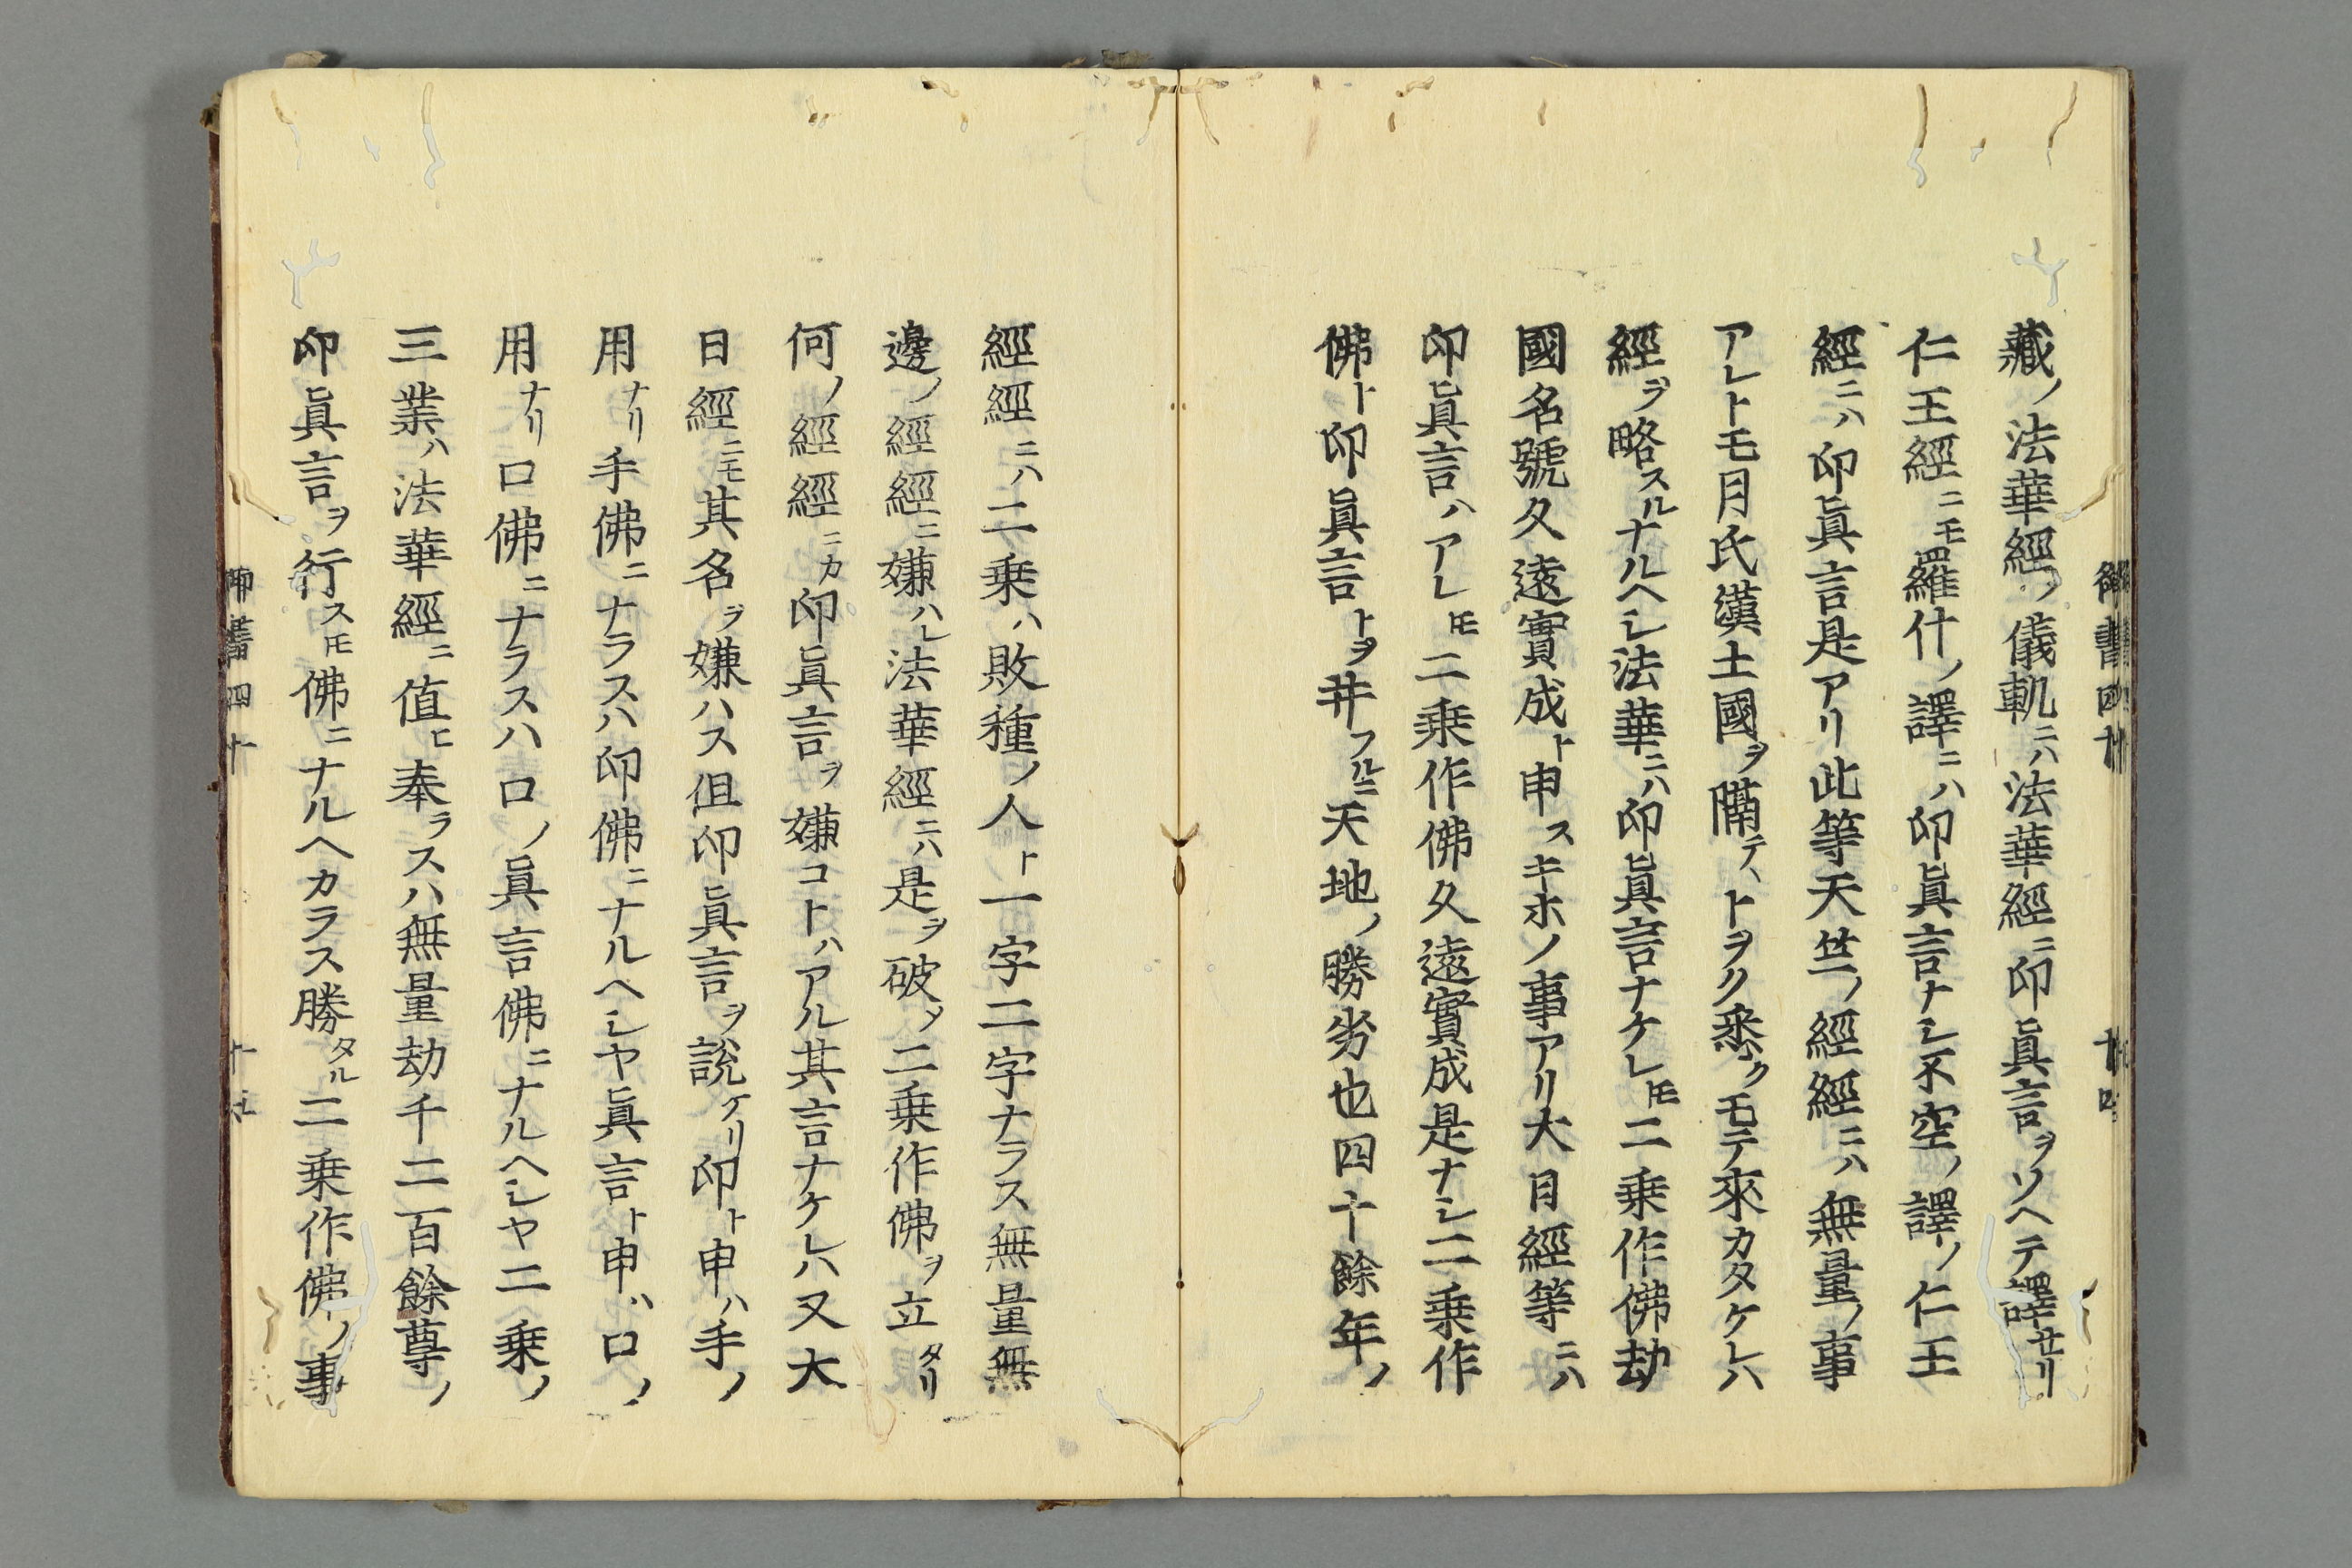 藏ノ法華經ノ儀軌ニハ法華經ニ印眞言ヲソヘテ譯せリ
仁王經ニモ羅什ノ譯ニハ印眞言ナシ不空ノ譯ノ仁王
經ニハ印眞言是アリ此等天竺ノ經經ニハ無量ノ事
アレトモ月氏漢土國ヲ隔テヽトヲク悉クモテ來カタケレハ
經ヲ略スルナルヘシ法華ニハ印眞言ナケレ𪜈二乗作佛劫
國名號久遠實成ト申スキホノ事アリ大日經等ニハ
印眞言ハアレ𪜈二乗作佛久遠實成是ナシ二乗作
佛ト印眞言トヲ井フルニ天地ノ勝劣也四十餘年ノ
經經ニハ二乗ハ敗種ノ人ト一字二字ナラス無量無
邊ノ經經ニ嫌ハレ法華經ニハ是ヲ破メ二乗作佛ヲ立タリ
何ノ經經ニカ印眞言ヲ嫌コトハアル其言ナケレハ又大
日經ニモ其名ヲ嫌ハス但印眞言ヲ說ケリ印ト申ハ手ノ
用ナリ手佛ニナラスハ印佛ニナルヘシヤ眞言ト申ハ口ノ
用ナリ口佛ニナラスハ口ノ眞言佛ニナルヘシヤ二乗ノ
三業ハ法華經ニ値ヒ奉ラスハ無量劫千二百餘尊ノ
印眞言ヲ行ス𪜈佛ニナルヘカラス勝タル二乗作佛ノ事